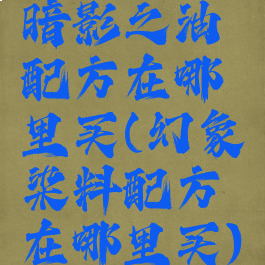 暗影之油
配方在哪
里买(幻象
染料配方
在哪里买)